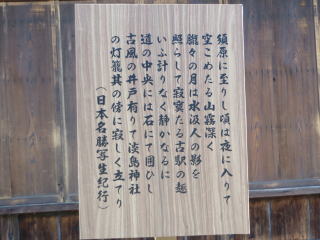 須原に至りし頃は夜に入りて
空こめたる山霧深く
朧々の月は水汲人の影を
照らして寂寞たる古駅の趣
いふ計りなく静かなるに
道の中央には石にて囲ひし
古風の井戸有りて淡島神社
の灯籠其の傍に寂しく立てり
(日本名勝写生紀行)